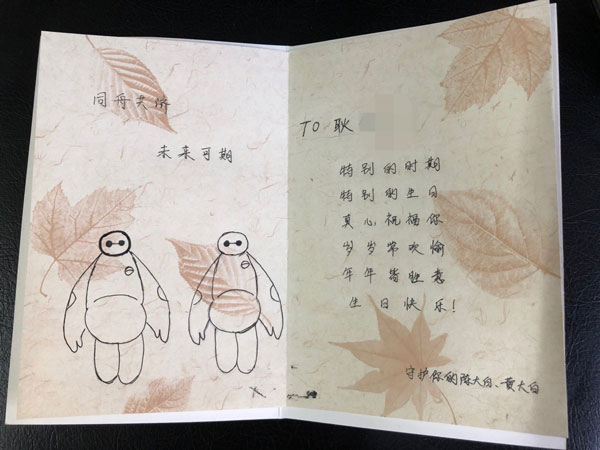 同舟共济
未来可期
TO 耿
特别的时期
特别的生日
真心祝福你
岁岁常欢愉
年年皆胜意
生日快乐!
守护你的陈大白、黄大白